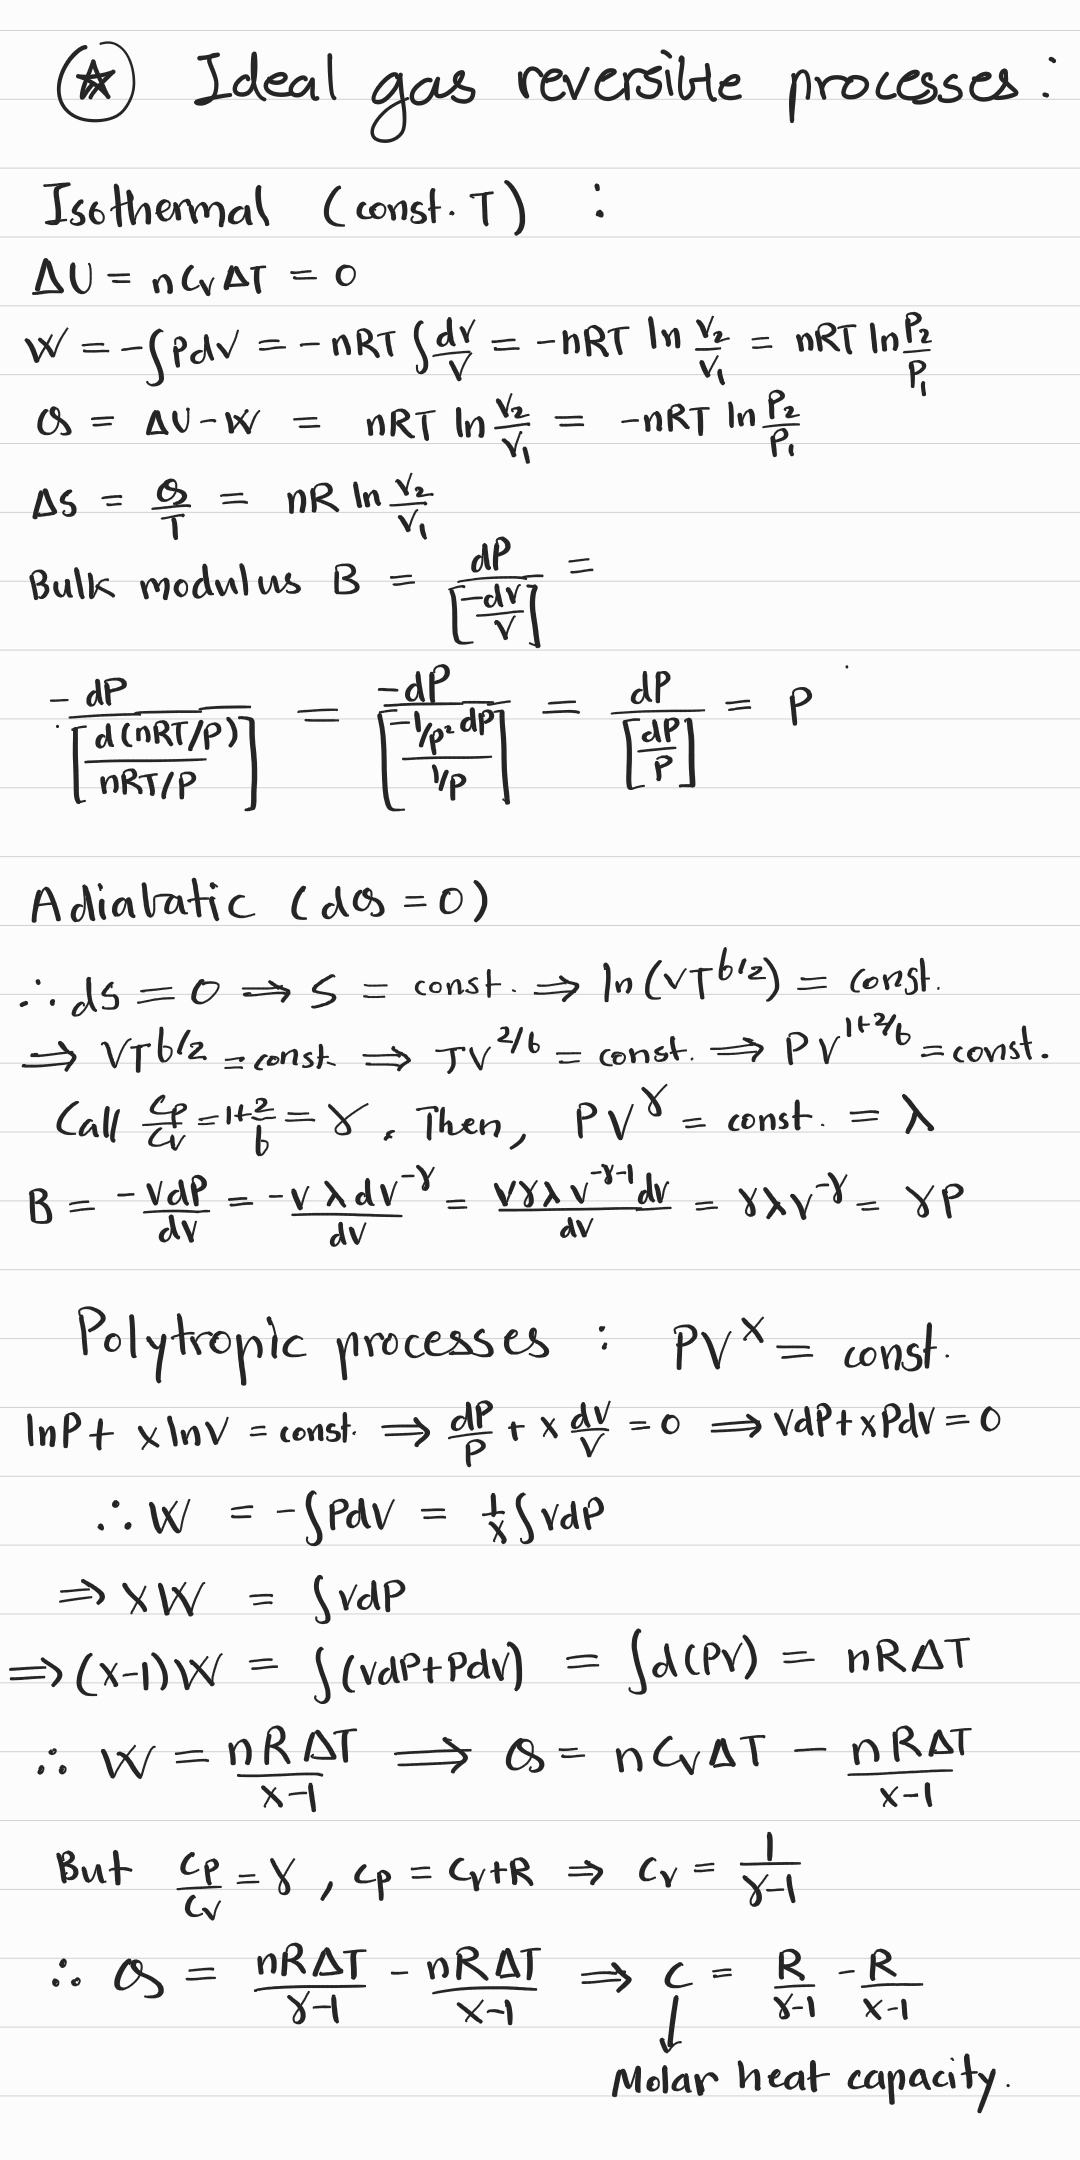 ⍟ Ideal gas reversible processes :
Isothermal (const. T) :
ΔU = nCvΔT = 0
W = -∫PdV = -nRT ∫dV/V = -nRT ln V₂/V₁ = nRT ln P₂/P₁
Q = ΔU - W = nRT ln V₂/V₁ = -nRT ln P₂/P₁
ΔS = Q/T = nR ln V₂/V₁
Bulk modulus B = dP/[-dV/V] =
-dP/[d(nRT/P)/nRT/P] = -dP/[-1/P² dP/1/P] = dP/[dP/P] = P
Adiabatic (dQ = 0)
∴ dS = 0 ⇒ S = const. ⇒ ln(VT^b/2) = const.
⇒ VT^b/2 = const. ⇒ TV^2/b = const. ⇒ PV^1+2/b = const.
Call Cp/Cv = 1+2/b = γ. Then, PV^γ = const. = λ
B = -VdP/dV = -VλdV^-γ/dV = Vγλ V^-γ-1 dV/dV = γλV^-γ = γP
Polytropic processes : PV^x = const.
lnP + x lnV = const. ⇒ dP/P + x dV/V = 0 ⇒ VdP + xPdV = 0
∴ W = -∫PdV = 1/x ∫VdP
⇒ xW = ∫VdP
⇒ (x-1)W = ∫(VdP+PdV) = ∫d(PV) = nRΔT
∴ W = nRΔT/x-1 ⇒ Q = nCvΔT - nRΔT/x-1
But Cp/Cv = γ, Cp = Cv+R ⇒ Cv = 1/γ-1
∴ Q = nRΔT/γ-1 - nRΔT/x-1 ⇒ C = R/γ-1 - R/x-1
↓
Molar heat capacity.